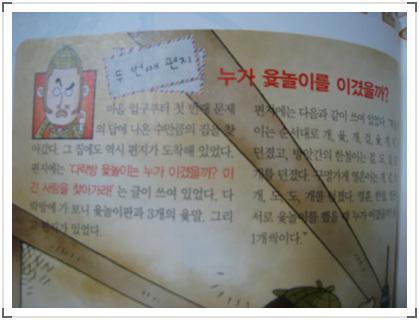 두 번째 편지
누가 윷놀이를 이겼을까?
마을 입구부터 첫 번째 문제
의 답에 나온 수만큼의 집을 찾
아갔다. 그 집에도 역시 편지가 도착해 있었다.
편지에는 '다락방 윷놀이는 누가 이겼을까? 이
긴 사람을 찾아가라!'는 글이 쓰여 있었다. 다
락방에 가 보니 윷놀이판과 3개의 윷말, 그리
고 편지가 있었다.
편지에는 다음과 같이 쓰여 있었다.
이는 순서대로 개, 윷, 개, 걸, 윷,
던졌고, 방앗간의 한돌이는 걸, 도,
개를 던졌다.
개, 도, 도, 개를 던졌다.
서로 윷놀이를 했을 때 누가 이겼을까?
1개씩이다."